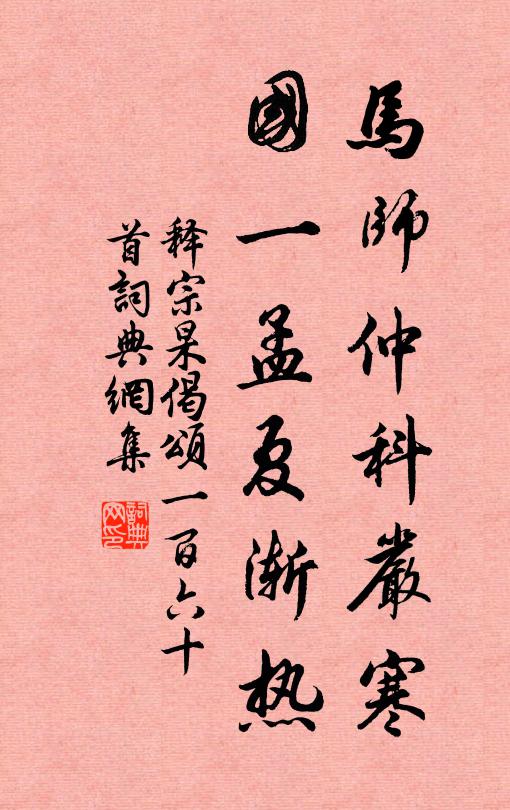 馬師仲科嚴寒
國一孟夏渐热
释宗杲偈頌一百六十
首詞典網集
詞典网印